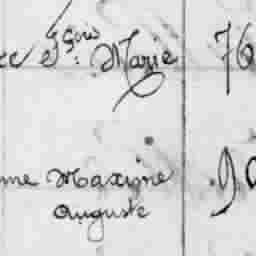 ec Fçois Marie 76
me Maxime 90
Auguste